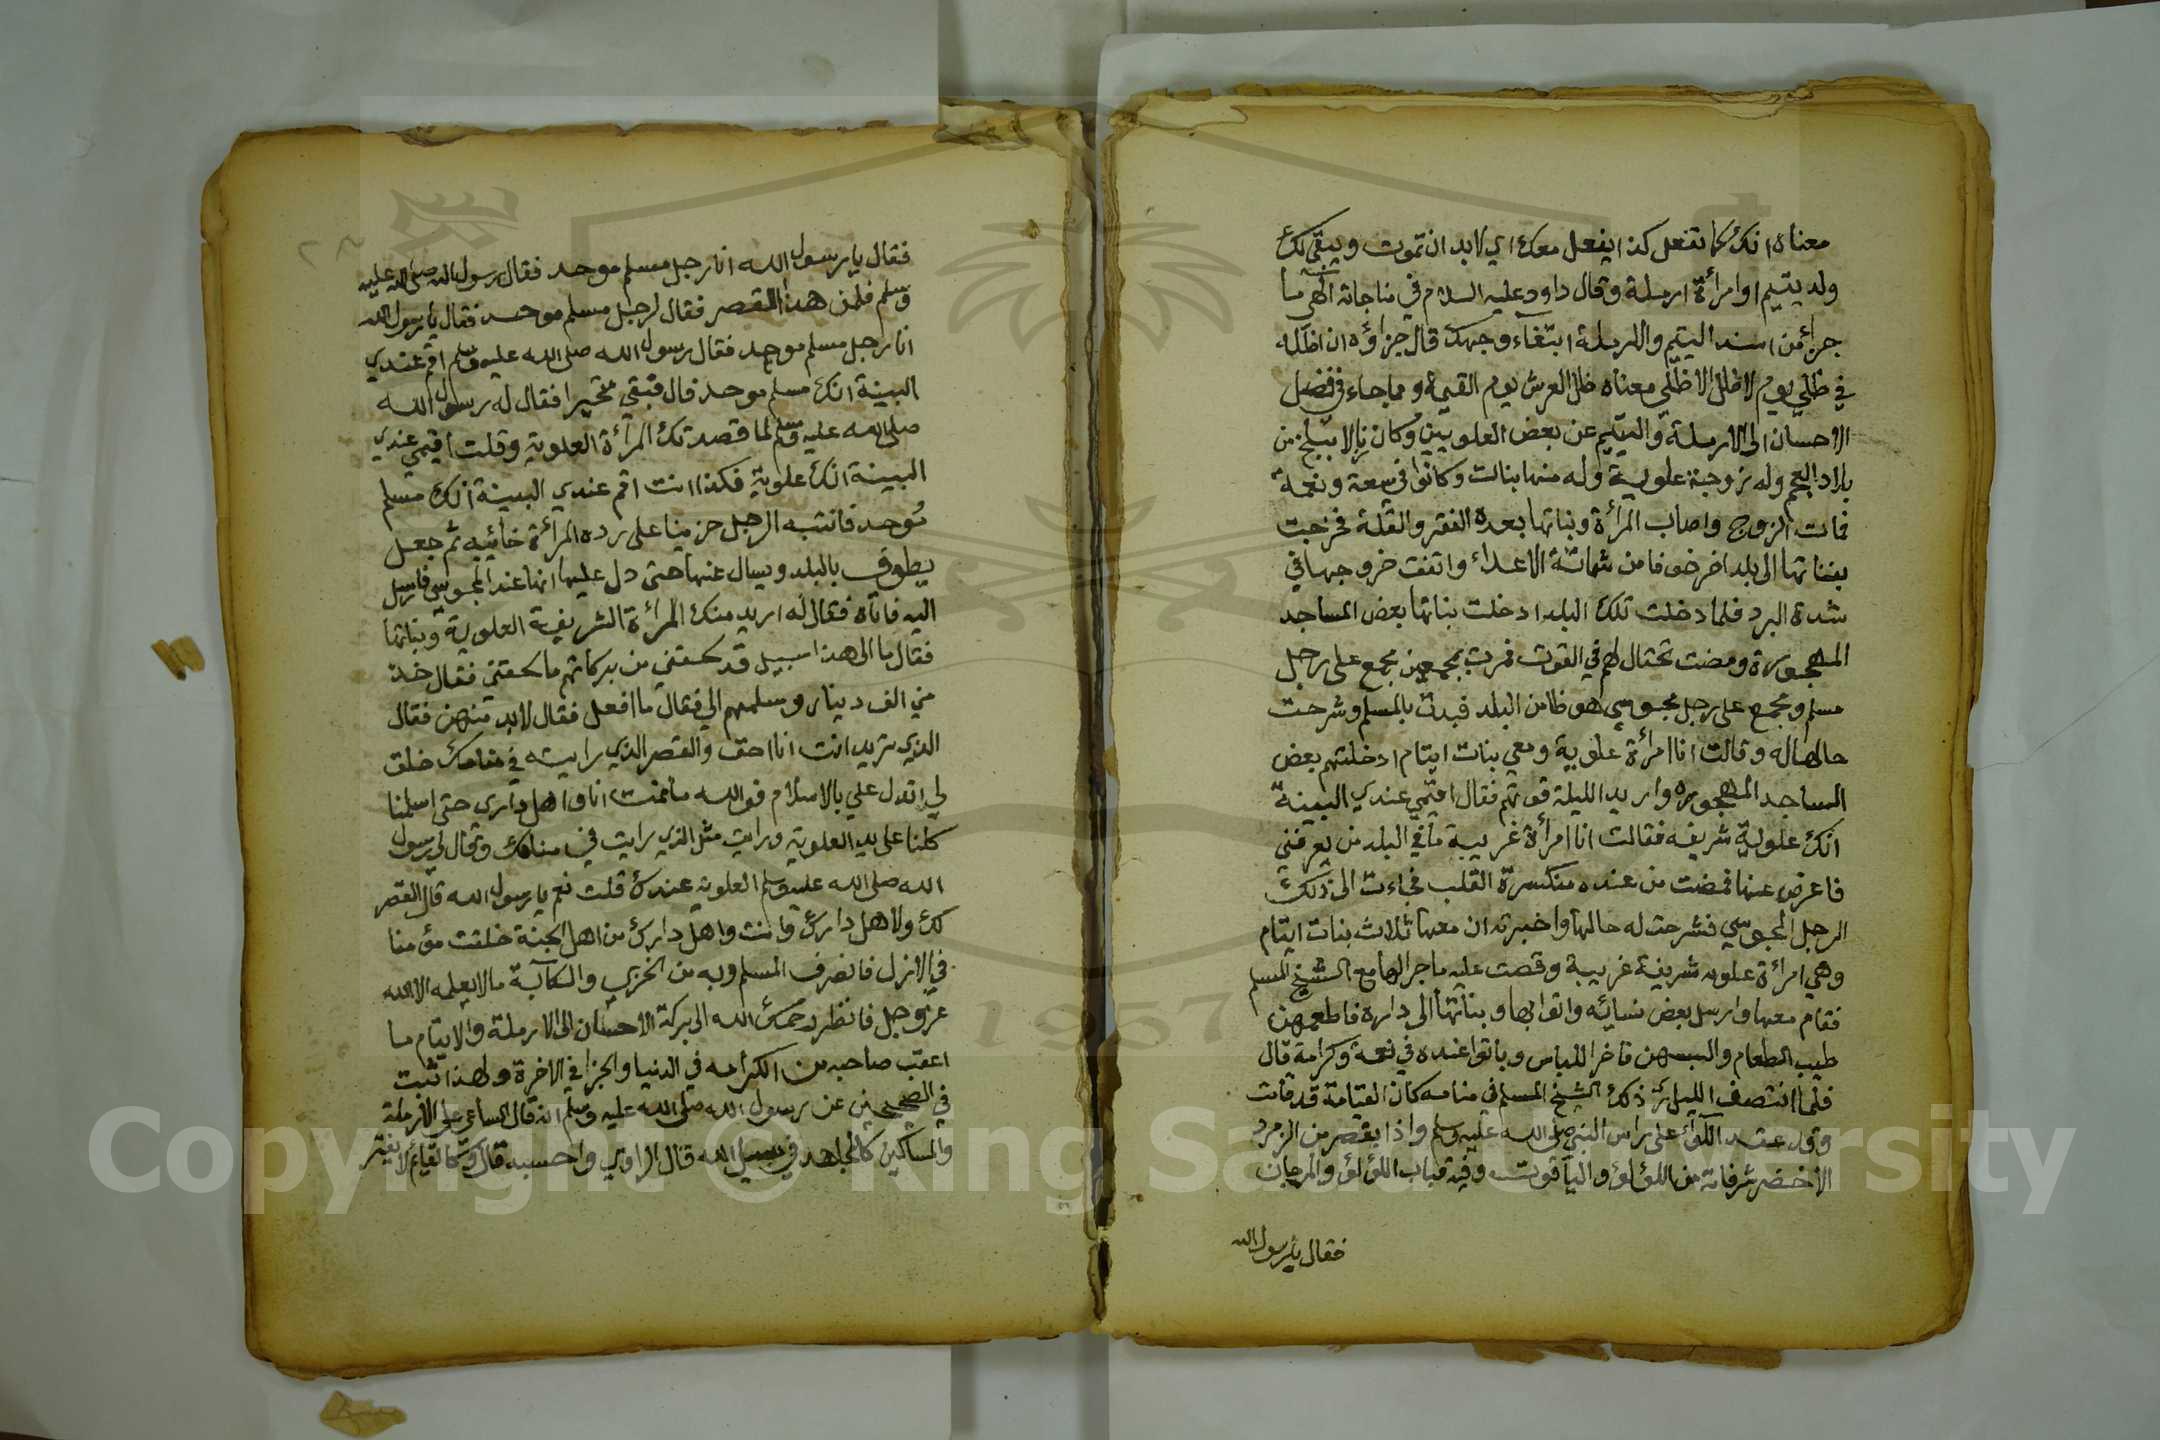 معناه انك كما تفعل كذا يفعل معك اي لابد ان تموت ويبقى لك
ولد يتيم او امرأة ارملة وقال داود عليه السلام في مناجاته الهي ما
جزاء من اسند اليتيم والارملة ابتغاء وجهك قال جزاؤه ان اظله
في ظلي يوم لا ظل الا ظلي معناه ظل العرش يوم القيمة ومما جاء في فضل
الاحسان الى الارملة واليتيم عن بعض العلويين وكان نازلا ببلخ من
بلاد العجم وله زوجة علوية وله منها بنات وكانوا في سعة ونعمة
فمات الزوج واصاب المرأة وبناتها بعده الفقر والقلة فخرجت
ببناتها الى بلد اخر خوفا من شماتة الاعداء واتفت خروجها في
شدة البرد فلما دخلت تلك البلد ادخلت بناتها بعض المساجد
المهجورة ومضت تحتال لهم في القوت فمرت بجمعين جمع على رجل
مسلم وجمع على رجل مجوسي هو ضامن البلد فبدت بالمسلم وشرحت
حالها له وقالت انا امرأة علوية ومعي بنات ايتام ادخلتهم بعض
المساجد المهجوره واريد الليلة قوتهم فقال اقيمي عندي البينة
انك علوية شريفه فقالت انا امرأة غريبة ما في البلد من يعرفني
فاعرض عنها فمضت من عنده منكسرة القلب فجاءت الى ذلك
الرجل المجوسي فشرحت له حالها واخبرته ان معها ثلاث بنات ايتام
وهي امرأة علويه شريفة غريبة وقصت عليه ما جرالها مع الشيخ المسلم
فقام معها وارسل بعض نسائه واتوا بها وبناتها الى داره فاطعمهن
طيب الطعام والبسهن فاخر اللباس وباتوا عنده في نعمة وكرامة قال
فلما انتصف الليل رأى ذلك الشيخ المسلم في منامه كان القيامة قد قامت
وقد عقد اللواء على راس النبي صلى الله عليه وسلم واذا بقصر من الزمرد
الاخضر شرفاته من اللؤلؤ والياقوت وفيه قباب اللؤلؤ والمرجان
فقال يا رسول الله
فقال يا رسول الله انا رجل مسلم موحد فقال رسول الله صلى الله عليه
وسلم فلمن هذا القصر فقال لرجل مسلم موحد فقال يا رسول الله
انا رجل مسلم موحد فقال رسول الله صلى الله عليه وسلم اقم عندي
البينة انك مسلم موحد قال فبقي متحيرا فقال له رسول الله
صلى الله عليه وسلم لما قصدتك المرأة العلوية وقلت اقيمي عندي
البينة انك علوية فكذا انت اقم عندي البينة انك مسلم
موحد فانتبه الرجل حزينا على رده المرأة خائبه ثم جعل
يطوف بالبلد ويسال عنها حتى دل عليها انها عند المجوسي فارسل
اليه فاتاه فقال له اريد منك المرأة الشريفة العلوية وبناتها
فقال ما الى هذا سبيل قد لحقني من بركاتهم ما لحقني فقال خذ
مني الف دينار وسلمهم الي فقال ما افعل فقال لابد منهن فقال
الذي تريد انت انا احق والقصر الذي رايته في منامك خلق
لي اتدل علي بالاسلام فوالله ما نمت انا واهل داري حتى اسلمنا
كلنا على يد العلوية ورايت مثل الذي رايت في منامك وقال لي رسول
الله صلى الله عليه وسلم العلويه عندك قلت نعم يا رسول الله قال القصر
لك ولاهل دارك وانت واهل دارك من اهل الجنة خلقت مؤمنا
في الازل فانصرف المسلم وبه من الخزي والكآبة ما لا يعلمه الا الله
عز وجل فانظر رحمك الله الى بركة الاحسان الى الارملة والايتام ما
اعقب صاحبه من الكرامه في الدنيا والجزا في الاخرة ولهذا ثبت
في الصحيحين عن رسول الله صلى الله عليه وسلم انه قال الساعي على الارملة
والمساكين كالمجاهد في سبيل الله قال الراوي واحسبه قال وكالقايم لا يفتر
1957
Copyright © King Saud University